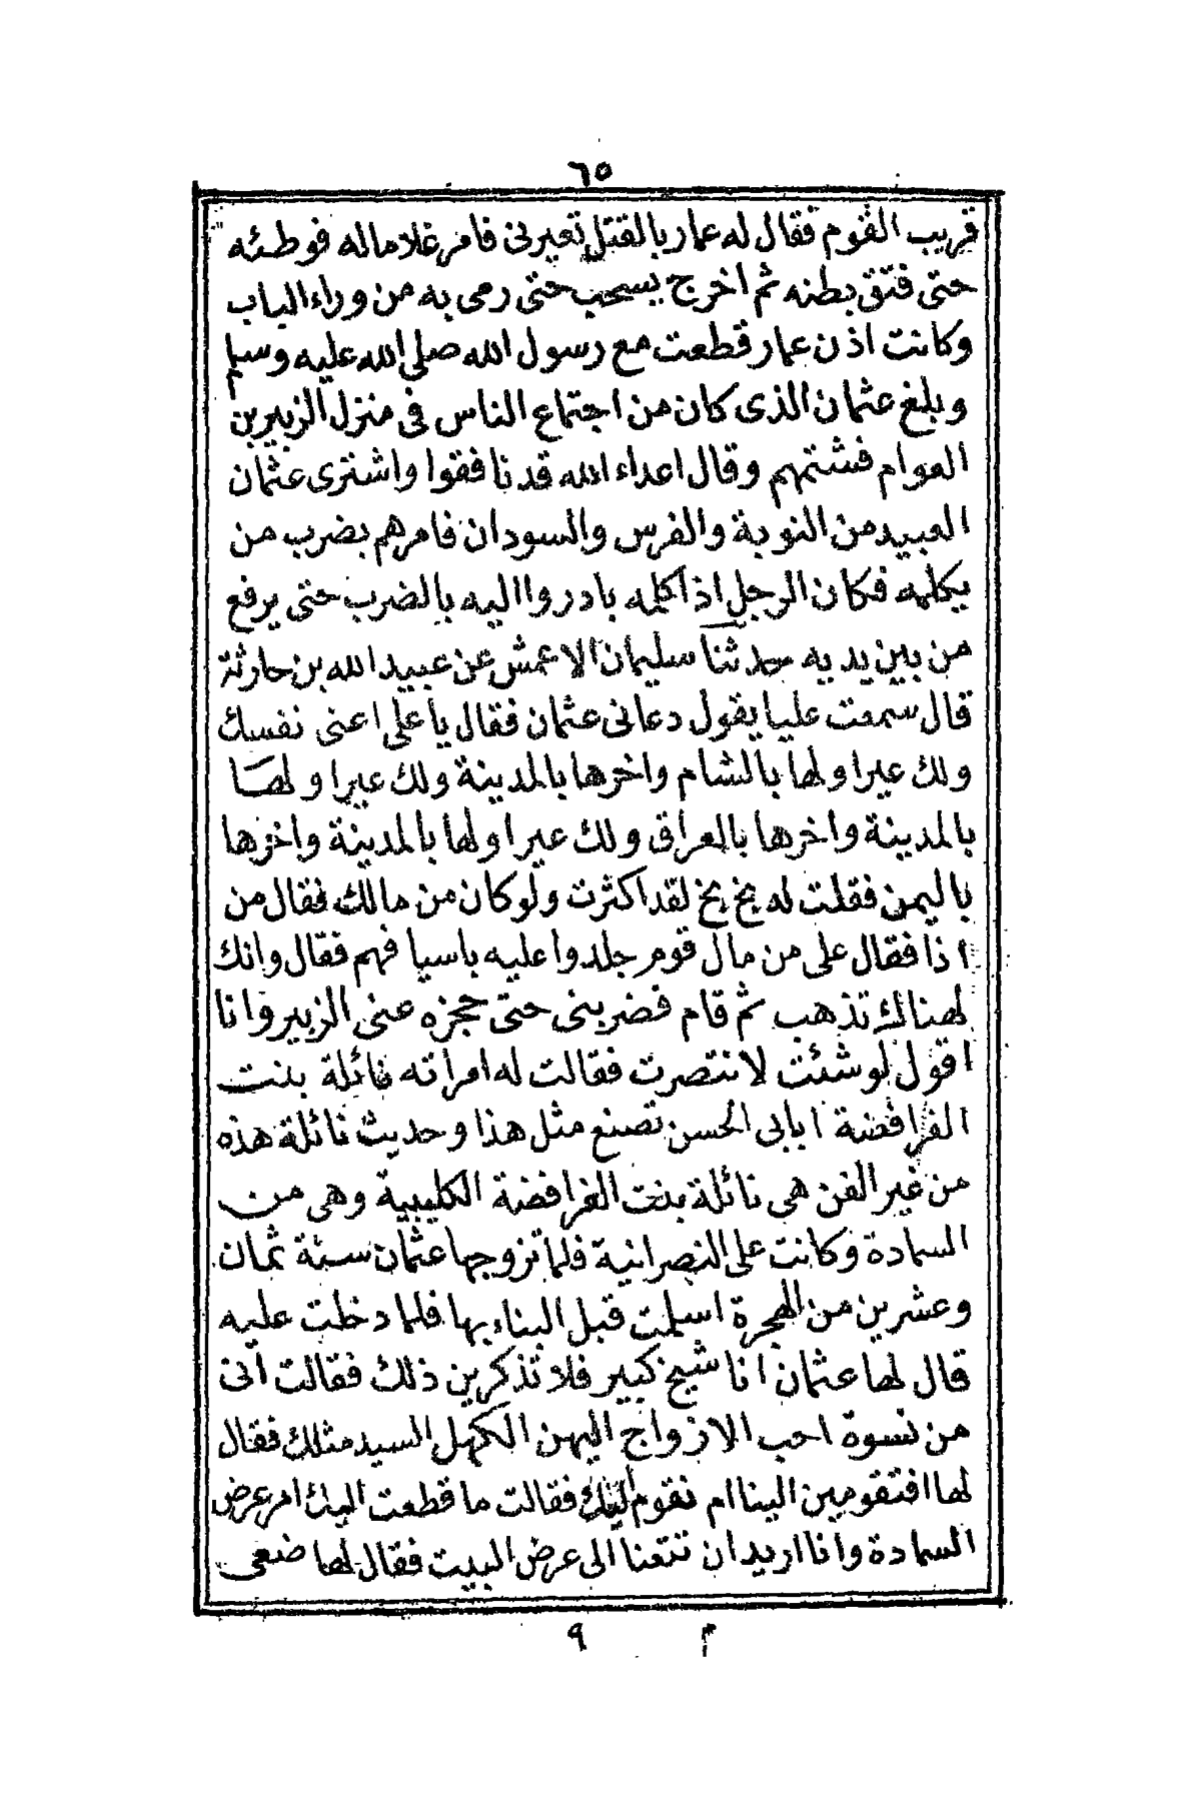 ٦٥
قريب القوم فقال له عمار بالقتل تعيرنى فامر غلاما له فوطئه
حتى فتق بطنه ثم اخرج يسحب حتى رمى به من وراء الباب
وكانت اذن عمار قطعت مع رسول الله صلى الله عليه وسلم
وبلغ عثمان الذى كان من اجتماع الناس فى منزل الزبير بن
العوام فشتمهم وقال اعداء الله قد نافقوا واشترى عثمان
العبيد من النوبة والفرس والسودان فامرهم بضرب من
يكلمه فكان الرجل اذا كلمه بادروا اليه بالضرب حتى يرفع
من بين يديه حدثنا سليمان الاعمش عن عبيد الله بن حارثة
قال سمعت عليا يقول دعانى عثمان فقال يا على اعنى نفسك
ولك عيرا ولها بالشام واخرها بالمدينة ولك عيرا ولها
بالمدينة واخرها بالعراق ولك عيرا ولها بالمدينة واخرها
باليمن فقلت له بخ بخ لقد اكثرت ولو كان من مالك فقال من
اذا فقال على من مال قوم جلدوا عليه باسيافهم فقال وانك
لهنالك تذهب ثم قام فضربنى حتى حجزه عنى الزبير وانا
اقول لو شئت لانتصرت فقالت له امراته نائلة بنت
الفرافضة ابابى الحسن تصنع مثل هذا وحديث نائلة هذه
من غير الفن هى نائلة بنت الفرافضة الكليبية وهى من
السمادة وكانت على النصرانية فلما تزوجها عثمان سنة ثمان
وعشرين من الهجرة اسلمت قبل البناء بها فلما دخلت عليه
قال لها عثمان انا شيخ كبير فلا تذكرين ذلك فقالت انى
من نسوة احب الازواج اليهن الكهل السيد مثلك فقال
لها افتقومين الينا ام نقوم اليك فقالت ما قطعت اليك امر عرض
السمادة وانا اريد ان تتعنا الى عرض البيت فقال لها ضعى
م ٩